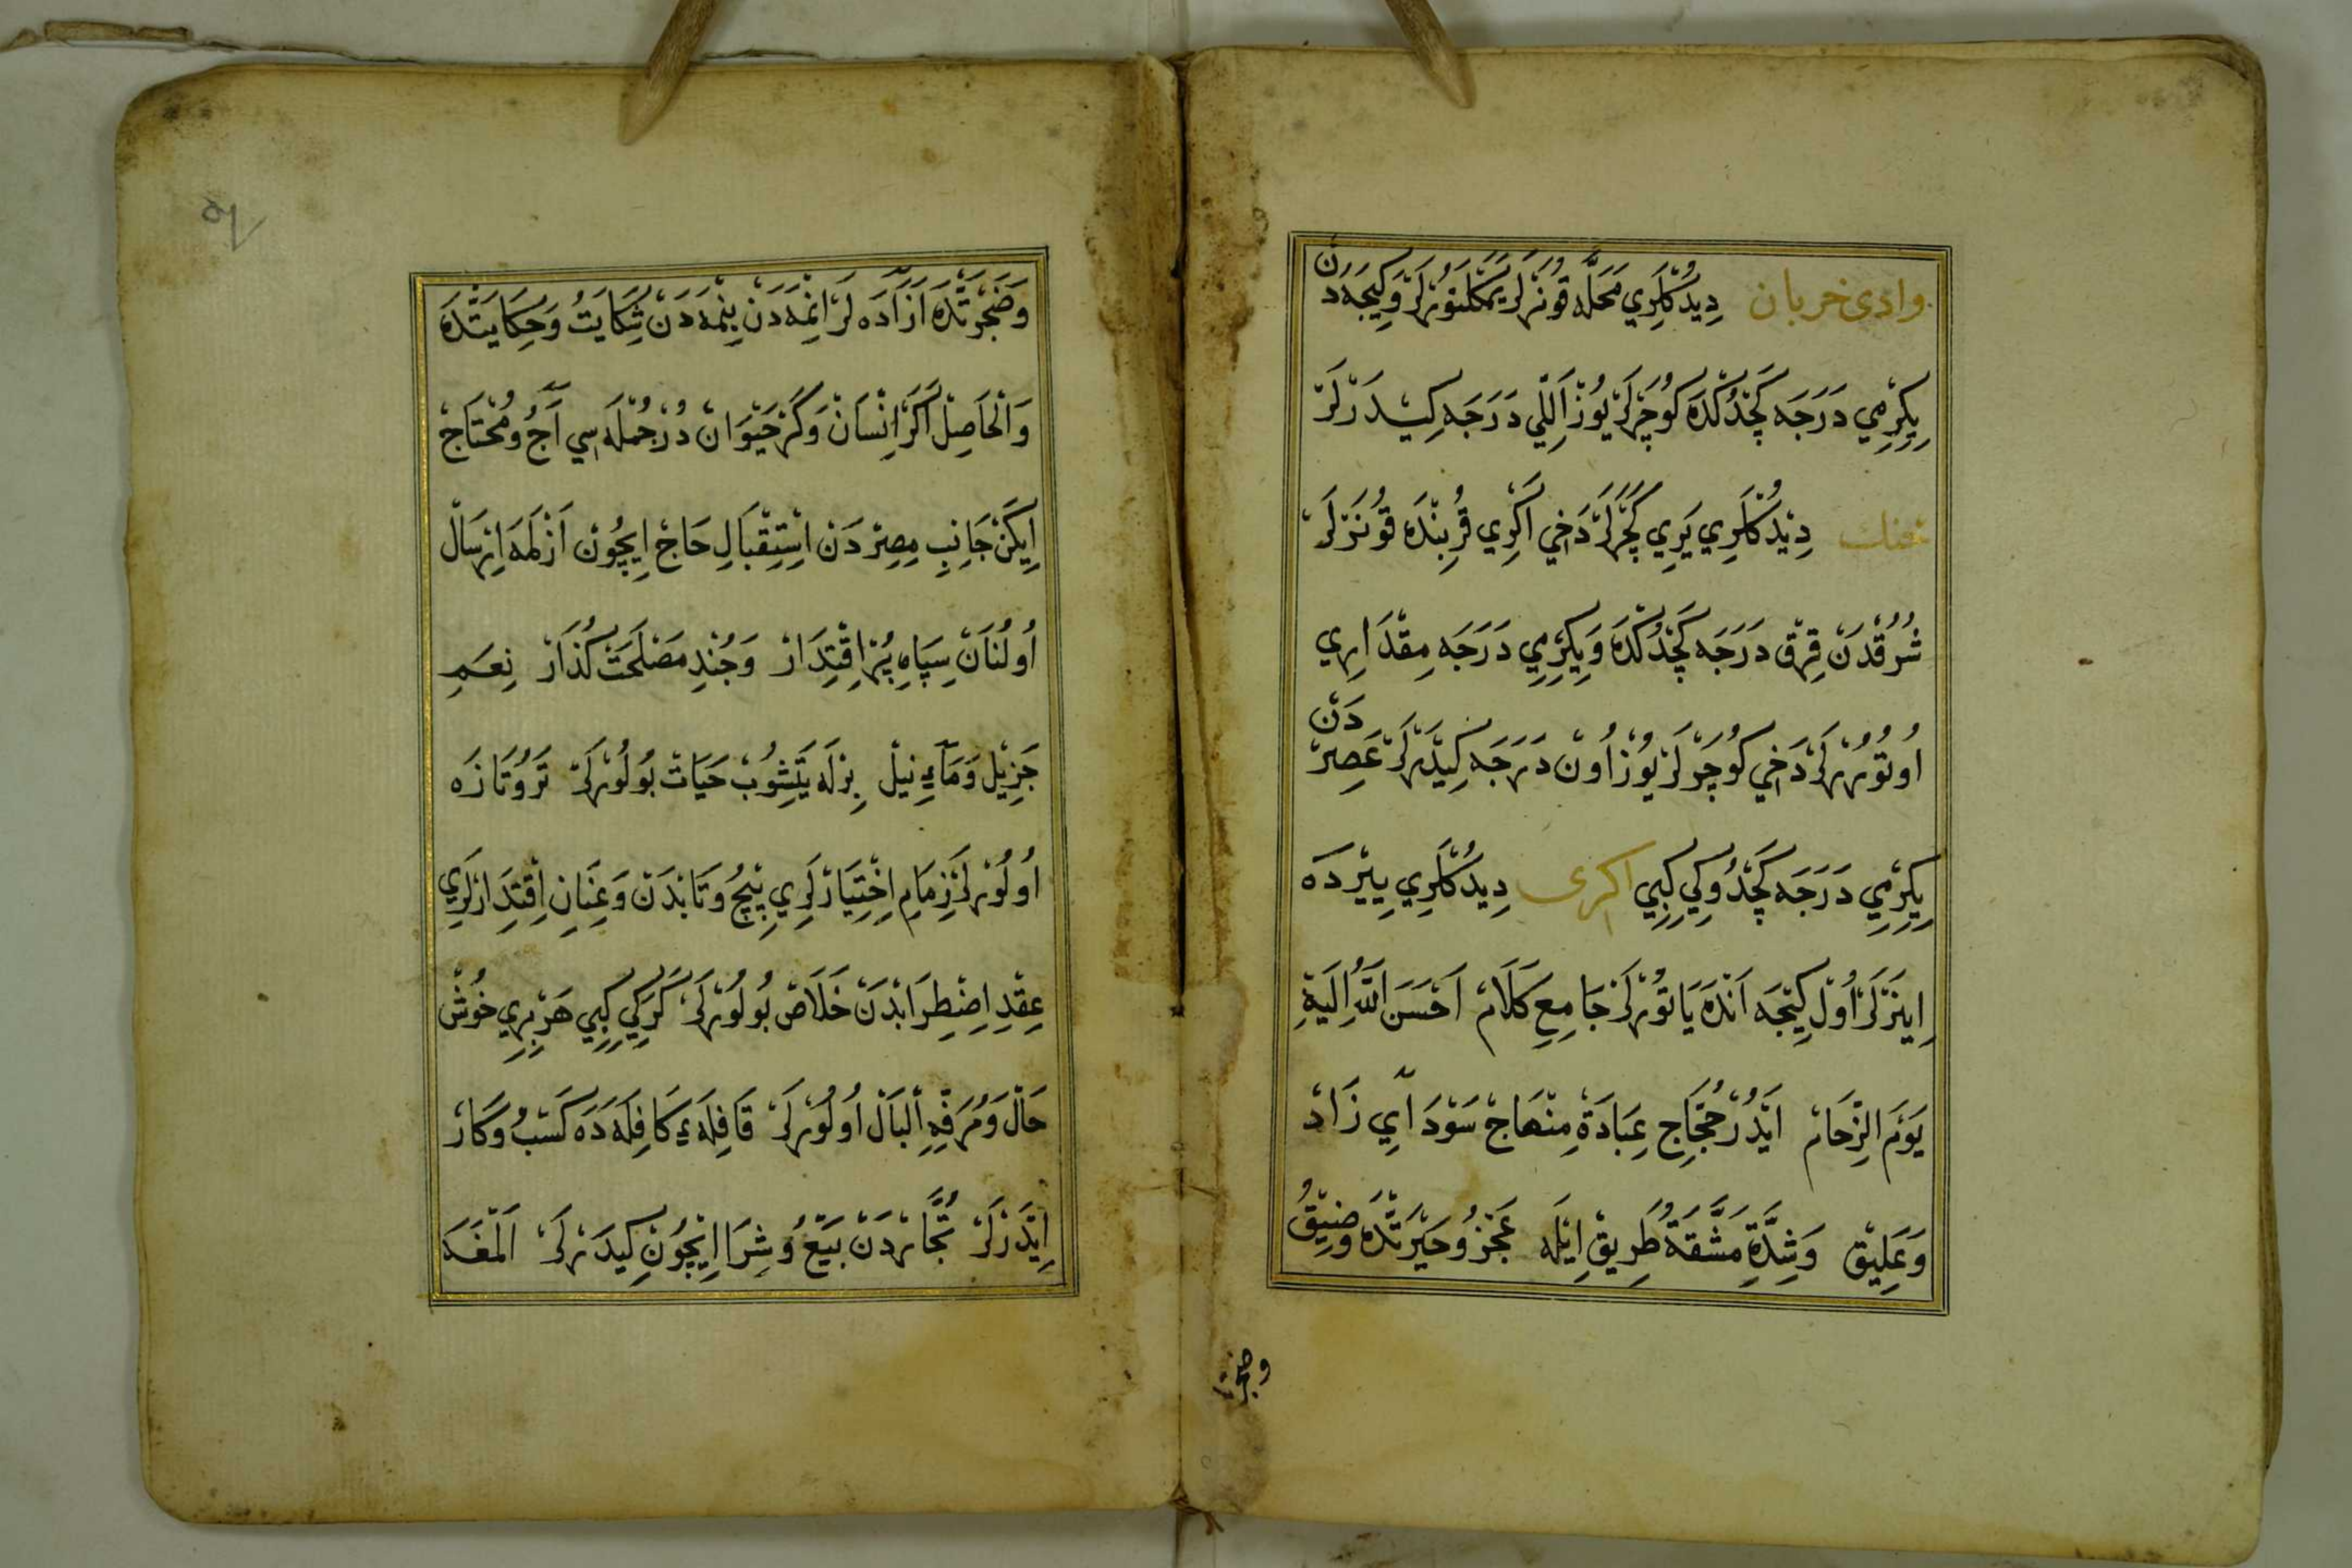 وادی خربان دِيدُكْلَرِي مَحَلَّه قُونَرلَرْ يَمَكْلَنُورلَرْ وَكِيجَه دَنْ
يِكِرْمِي دَرَجَه كَچْدُكْدَه كُوچَرْلَرْ يُوزْ اَللِّي دَرَجَه كِيدَرْلَرْ
دِيْدُكْلَرِي يَرِي كَچَرْلَرْ دَخِي اَكْرِي قُرْبِنْدَه قُونَرْلَرْ
شُرُقْدَنْ قِرْق دَرَجَه كَچْدُكْدَه وَيِكِرْمِي دَرَجَه مِقْدَارِي
اُوتُورُرلَرْ دَخِي كُوچَرْلَرْ يُوزْ اُونْ دَرَجَه كِيدَرْلَرْ عَصِرْ دَنْ
يِكِرْمِي دَرَجَه كَچْدُوكِي كِبِي اکری دِيدُكْلَرِي يِيَرْدَه
اِينَرْلَرْ اُولْ كِيْجَه اَنْدَه يَاتُورْلَرْ جَامِعِ كَلَامْ اَحْسَنَ اللّٰهُ اِلَيْهِ
يَوْمَ الزِّحَامْ اَيْدُرْ حُجَّاجِ عِبَادَةْ مِنْهَاجْ سَوْدَآيِ زَادْ
وَعَلِيْق وَشِدَّةِ مَشَّقَةُ طَرِيقْ اِيْلَه عَجْزُ وحَيْرَتْدَه وضِيْقُ
وضجرتده
وَضَجْرَتْدَه اَزْآدَه لَرْ اِنْمَه دَنْ بِنْمَه دَنْ شِكَايَتْ وَحِكَايَتْدَه
وَالْحَاصِلْ اَكَرْ اِنْسَانْ وَكَرْ حَيْوَانْ دُرْ جُمْلَه سِي آجُ ومُحْتَاجْ
اِيكَنْ جَانِبِ مِصِرْ دَنْ اِسْتِقْبَالِ حَاجْ اِيچُونْ اَزْلَمَه اِرْسَالْ
اُولُنَانْ سِپَاهِ پُرْ اِقْتِدَارْ وَجُنْدِ مَصْلَحَتْ كُذَارْ نِعَمِ
جَزِيْل وَمَآءِ نِيلْ بِرْلَه يَتِشُوبْ حَيَاتْ بُولُورلَرْ تَرُوتَازَه
اُولُورلَرْ زِمَامِ اِخْتِيَارْلَرِي پِيْچُ وتَابْدَنْ وَعِنَانِ اِقْتِدَارْلَرِي
عِقْدِ اِضْطِرَابْدَنْ خَلَاصْ بُولُورلَرْ كَرَكِي كِبِي هَرْ بِرِي خُوشْ
حَالْ وَمُرَفَّهِ الْبَالْ اُولُورلَرْ قَافِلَهءِ كَافِلَه دَه كَسْبُ وكَارْ
اِيْدَرْلَرْ تُجَّارْدَنْ بَيْعُ وشِرَا اِيْچُونِ كِيدَرلَرْ